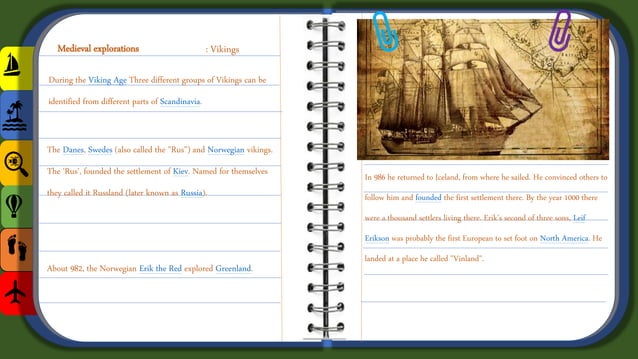 Medieval explorations : Vikings
During the Viking Age Three different groups of Vikings can be
identified from different parts of Scandinavia.
The Danes, Swedes (also called the "Rus") and Norwegian vikings.
The 'Rus', founded the settlement of Kiev. Named for themselves
they called it Russland (later known as Russia).
About 982, the Norwegian Erik the Red explored Greenland.
In 986 he returned to Iceland, from where he sailed. He convinced others to
follow him and founded the first settlement there. By the year 1000 there
were a thousand settlers living there. Erik's second of three sons, Leif
Erikson was probably the first European to set foot on North America. He
landed at a place he called "Vinland".